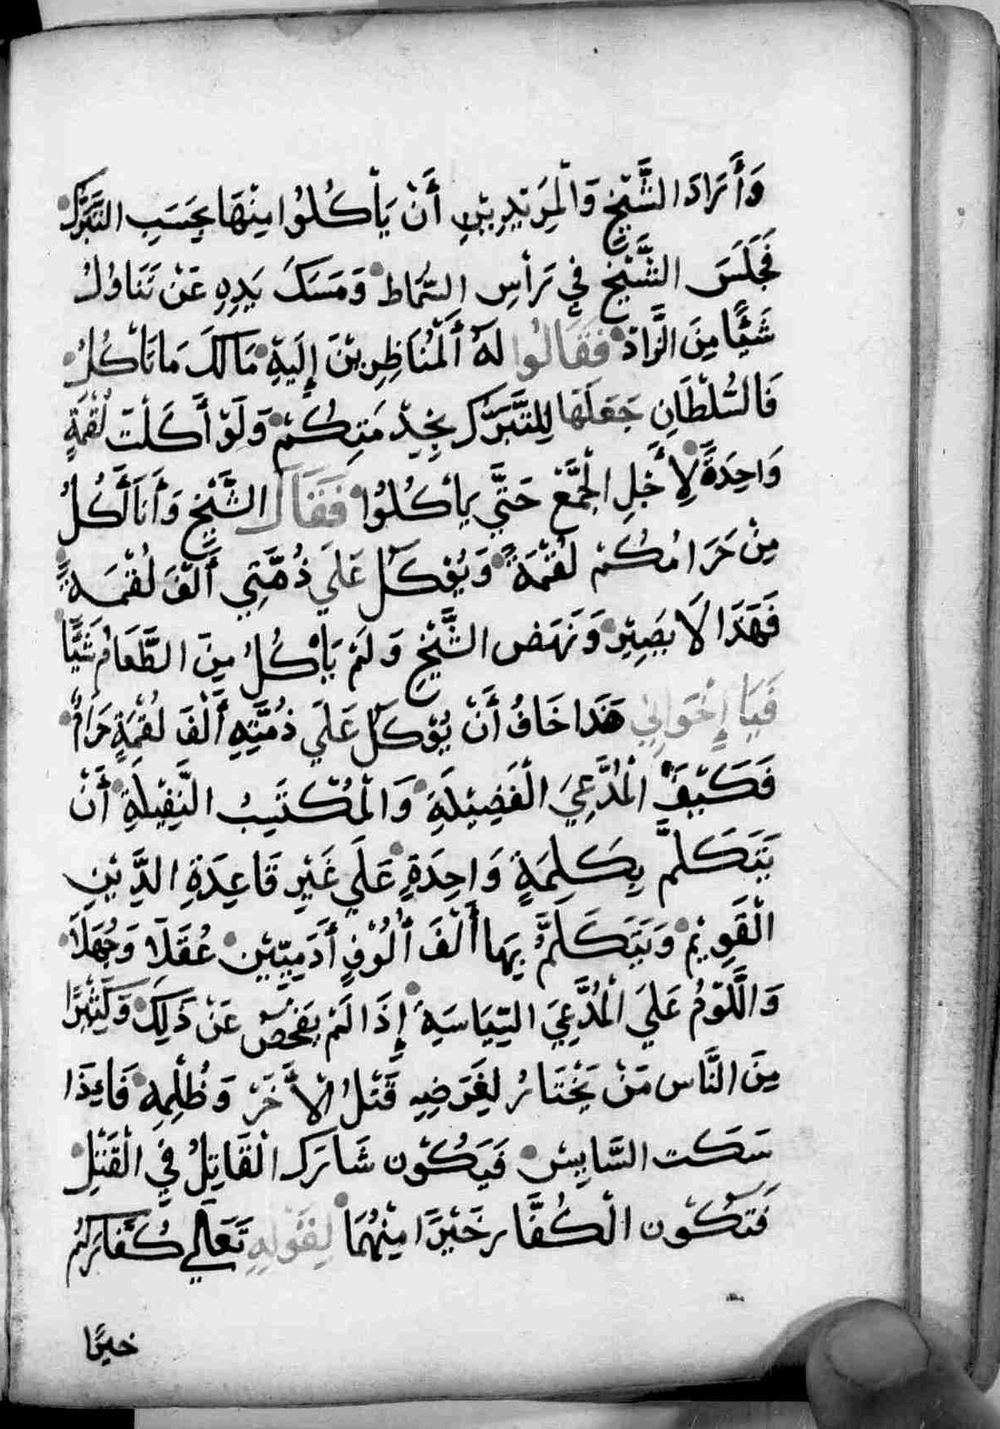 وَأَرَادَ الشَّيْخِ وَالْمِرَيْدِيْنِ أَنْ يَأْكُلُوا مِنْهَا بِحَسَبِ التَّبَرُّكْ
فَجَلَسَ الشَّيْخِ فِي رَأْسِ السُّمَاطْ وَمَسَكَ يَدِهِ عَنْ تَنَاوُلُ
شَيْئًا مِنَ الزَّادْ فَقَالُوا لَهُ الْمُنَاظِرِيْنَ إِلَيَهِ مَالَكَ مَا تَأْكُلْ
فَالسُّلْطَانِ جَعَلَهَا لِلتَّبَرُّكْ بِخِدْمَتِكُمْ وَلَوْ أَكَلْتَ لُقْمَةٍ
وَاحِدَةً لِأَجْلِ الْجَمْعْ حَتَّي يَأْكُلُوا فَقَالَ الشَّيْخِ وَأَنَا أَكُلُ
مِنْ حَرَامُكُمْ لُقْمَةً وَيُؤْكَلْ عَلَي ذُمَّتِي أَلْفَ لُقْمَةٍ
فَهَذَا لَا يَصِيْرْ وَنَهَضَ الشَّيْخِ وَلَمْ يَأْكُلُ مِنَ الطَّعَامُ شَيْئًا
فَيَا إِخْوَانِي هَذَا خَافُ أَنْ يُؤْكَلْ عَلَي ذُمَّتِهِ أَلْفَ لُقْمَةٍ حَرَامْ
فَكَيْفَ الْمُدَّعِيَ الْفَضِيْلَةِ وَالْمُكْتَسِبُ النَّفِيْلَةِ أَنْ
يَتَكَلَّمَ بِكَلِمَةٍ وَاحِدَةٍ عَلَي غَيْرِ قَاعِدَةِ الدِّيْنِ
الْقَوِيْمْ وَيَتَكَلَّمُ بِهَا أَلْفَ أُلُوْفٍ أَدَمِيِّيْنْ عُقَلَا وَجُهَلَا
وَاللَّوْمُ عَلَي الْمُدَّعِيَ السِّيَاسَةِ إِذَا لَمْ يَفْحَصْ عَنْ ذَلِكَ وَكَثِيْرًا
مِنَ النَّاسِ مَنْ يَخْتَارُ لِغَرَضِهِ قَتْلُ الْأَخَرْ وَظُلْمِهِ فَإِذَا
سَكَتَ السَّايِسْ فَيَكُوْنَ شَارَكَ الْقَاتِلُ فِي الْقَتْلِ
فَتَكُوْنَ الْكُفَّارِ خَيْرًا مِنْهُمَا لِقَوْلِهِ تَعَالَي كُفَّارَكُمْ
خيرًا